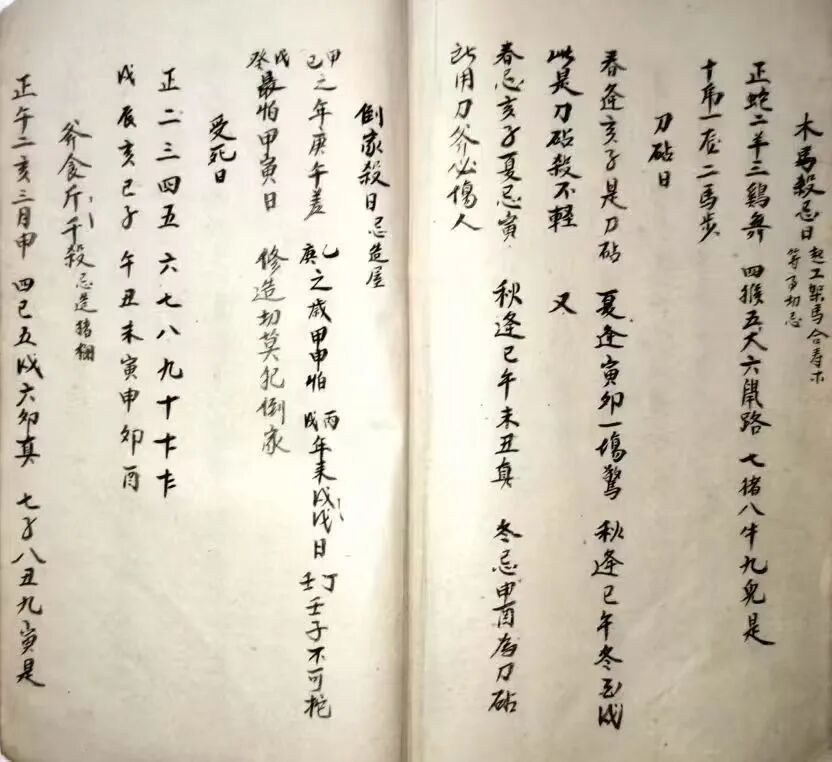 木馬殺忌日 起工架馬合寿木
等事切忌
正蛇二羊三鷄奔 四猴五犬六鼠路 七猪八牛九兔是
十 一 二馬步
刀砧日
春逢亥子是刀砧 夏逢寅卯一塲驚 秋逢巳午冬 
此是刀砧殺不輕 又
春忌亥子夏忌寅 秋逢巳午未丑真 冬忌申酉為刀砧
用刀斧必傷人
倒家殺日 忌造屋
甲己之年庚午差 乙庚之歲甲申怕 丙 年 戌日 丁壬壬子不可
戊癸最怕甲寅日 修造切莫犯倒家
受死日
正二三四五六七八九十
戌辰亥巳子午丑未寅申卯酉
斧食斤千殺 忌造猪棚
正午二亥三月申 四巳五戌六卯真 七子八丑九寅是